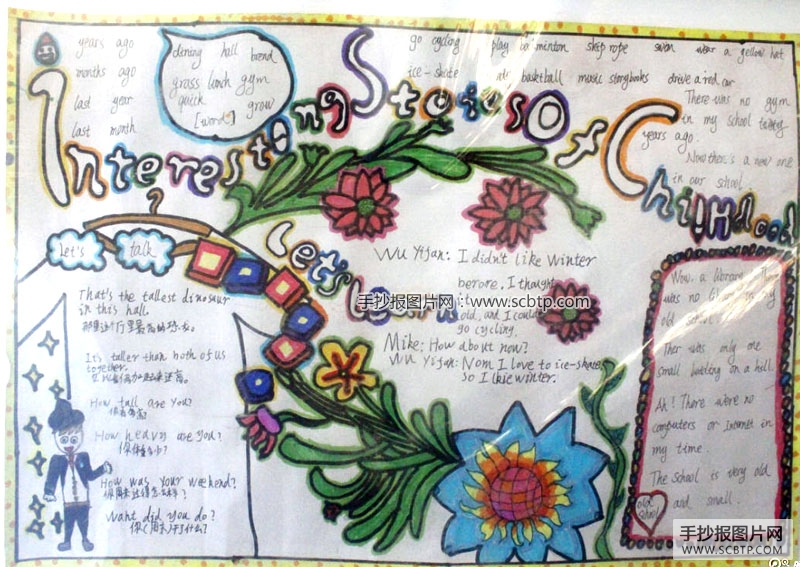 years ago
months ago
last year
last month
dining hall bread
grass lunch gym
quick grow
[word]
go cycling play badminton skip rope swim wear a yellow hat
ice-skate basktball music storybooks drive a red car
Interesting Stories Of Childhood
There was no gym
in my school twenty
years ago.
Now there's a new one
in our school.
Let's talk
Let's Learn
That's the tallest dinosaur
in this hall.
It's taller than both of us
together.
How tall are you?
How heavy are you?
How was your weekend?
Want did you do?
Wu Yifan: I didn't like winter
berore. I thought
old, and I could
go cycling.
Mike: How about now?
Wu Yifan: Nom I love to ice-skate
so I lkie winter.
Wow, a library. Th
was no library in my
old school
Ther was only one
small building on a hill.
Ah! There were no
computers or Internet in
my time.
The school is very old
and small.
old school
手抄报图片网：www.scbtp.com
手抄报图片网
WWW.SCBTP.COM